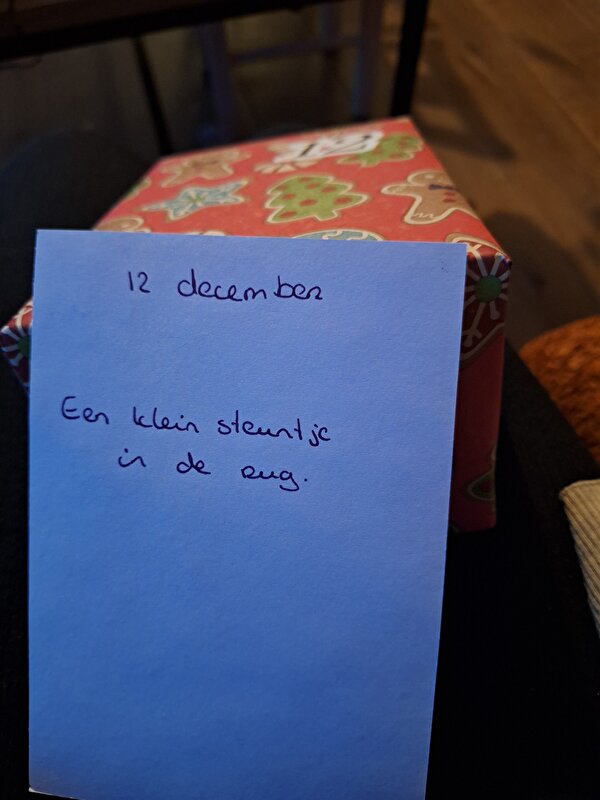 12
12 december
Een klein steuntje
in de rug.